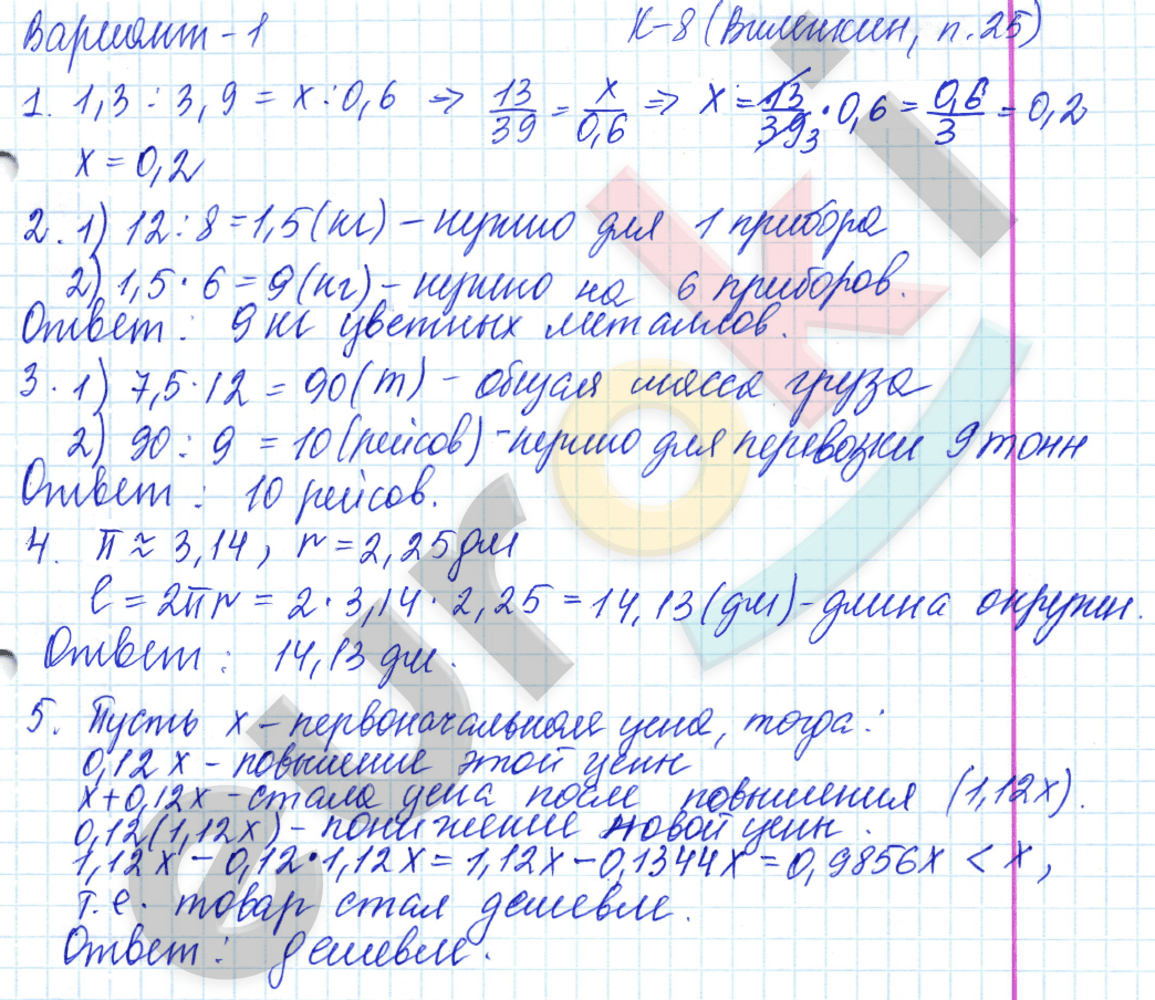 Вариант - 1 К-8 (Виленкин, п. 25)
1. 1,3 : 3,9 = x : 0,6 => 13/39 = x/0,6 => x = 13/39 3 · 0,6 = 0,6/3 = 0,2
x = 0,2
2. 1) 12 : 8 = 1,5 (кг) – нужно для 1 прибора
2) 1,5 · 6 = 9 (кг) – нужно на 6 приборов.
Ответ: 9 кг цветных металлов.
3. 1) 7,5 · 12 = 90 (т) – общая масса груза
2) 90 : 9 = 10 (рейсов) – нужно для перевозки 9 тонн
Ответ: 10 рейсов.
4. π ≈ 3,14, r = 2,25 дм
l = 2πr = 2 · 3,14 · 2,25 = 14,13 (дм) – длина окружн.
Ответ: 14,13 дм.
5. Пусть x – первоначальная цена, тогда:
0,12x – повышение этой цены
x + 0,12x – стала цена после повышения (1,12x).
0,12(1,12x) – понижение новой цены.
1,12x – 0,12 · 1,12x = 1,12x – 0,1344x = 0,9856x < x,
т.е. товар стал дешевле.
Ответ: дешевле.
euroki